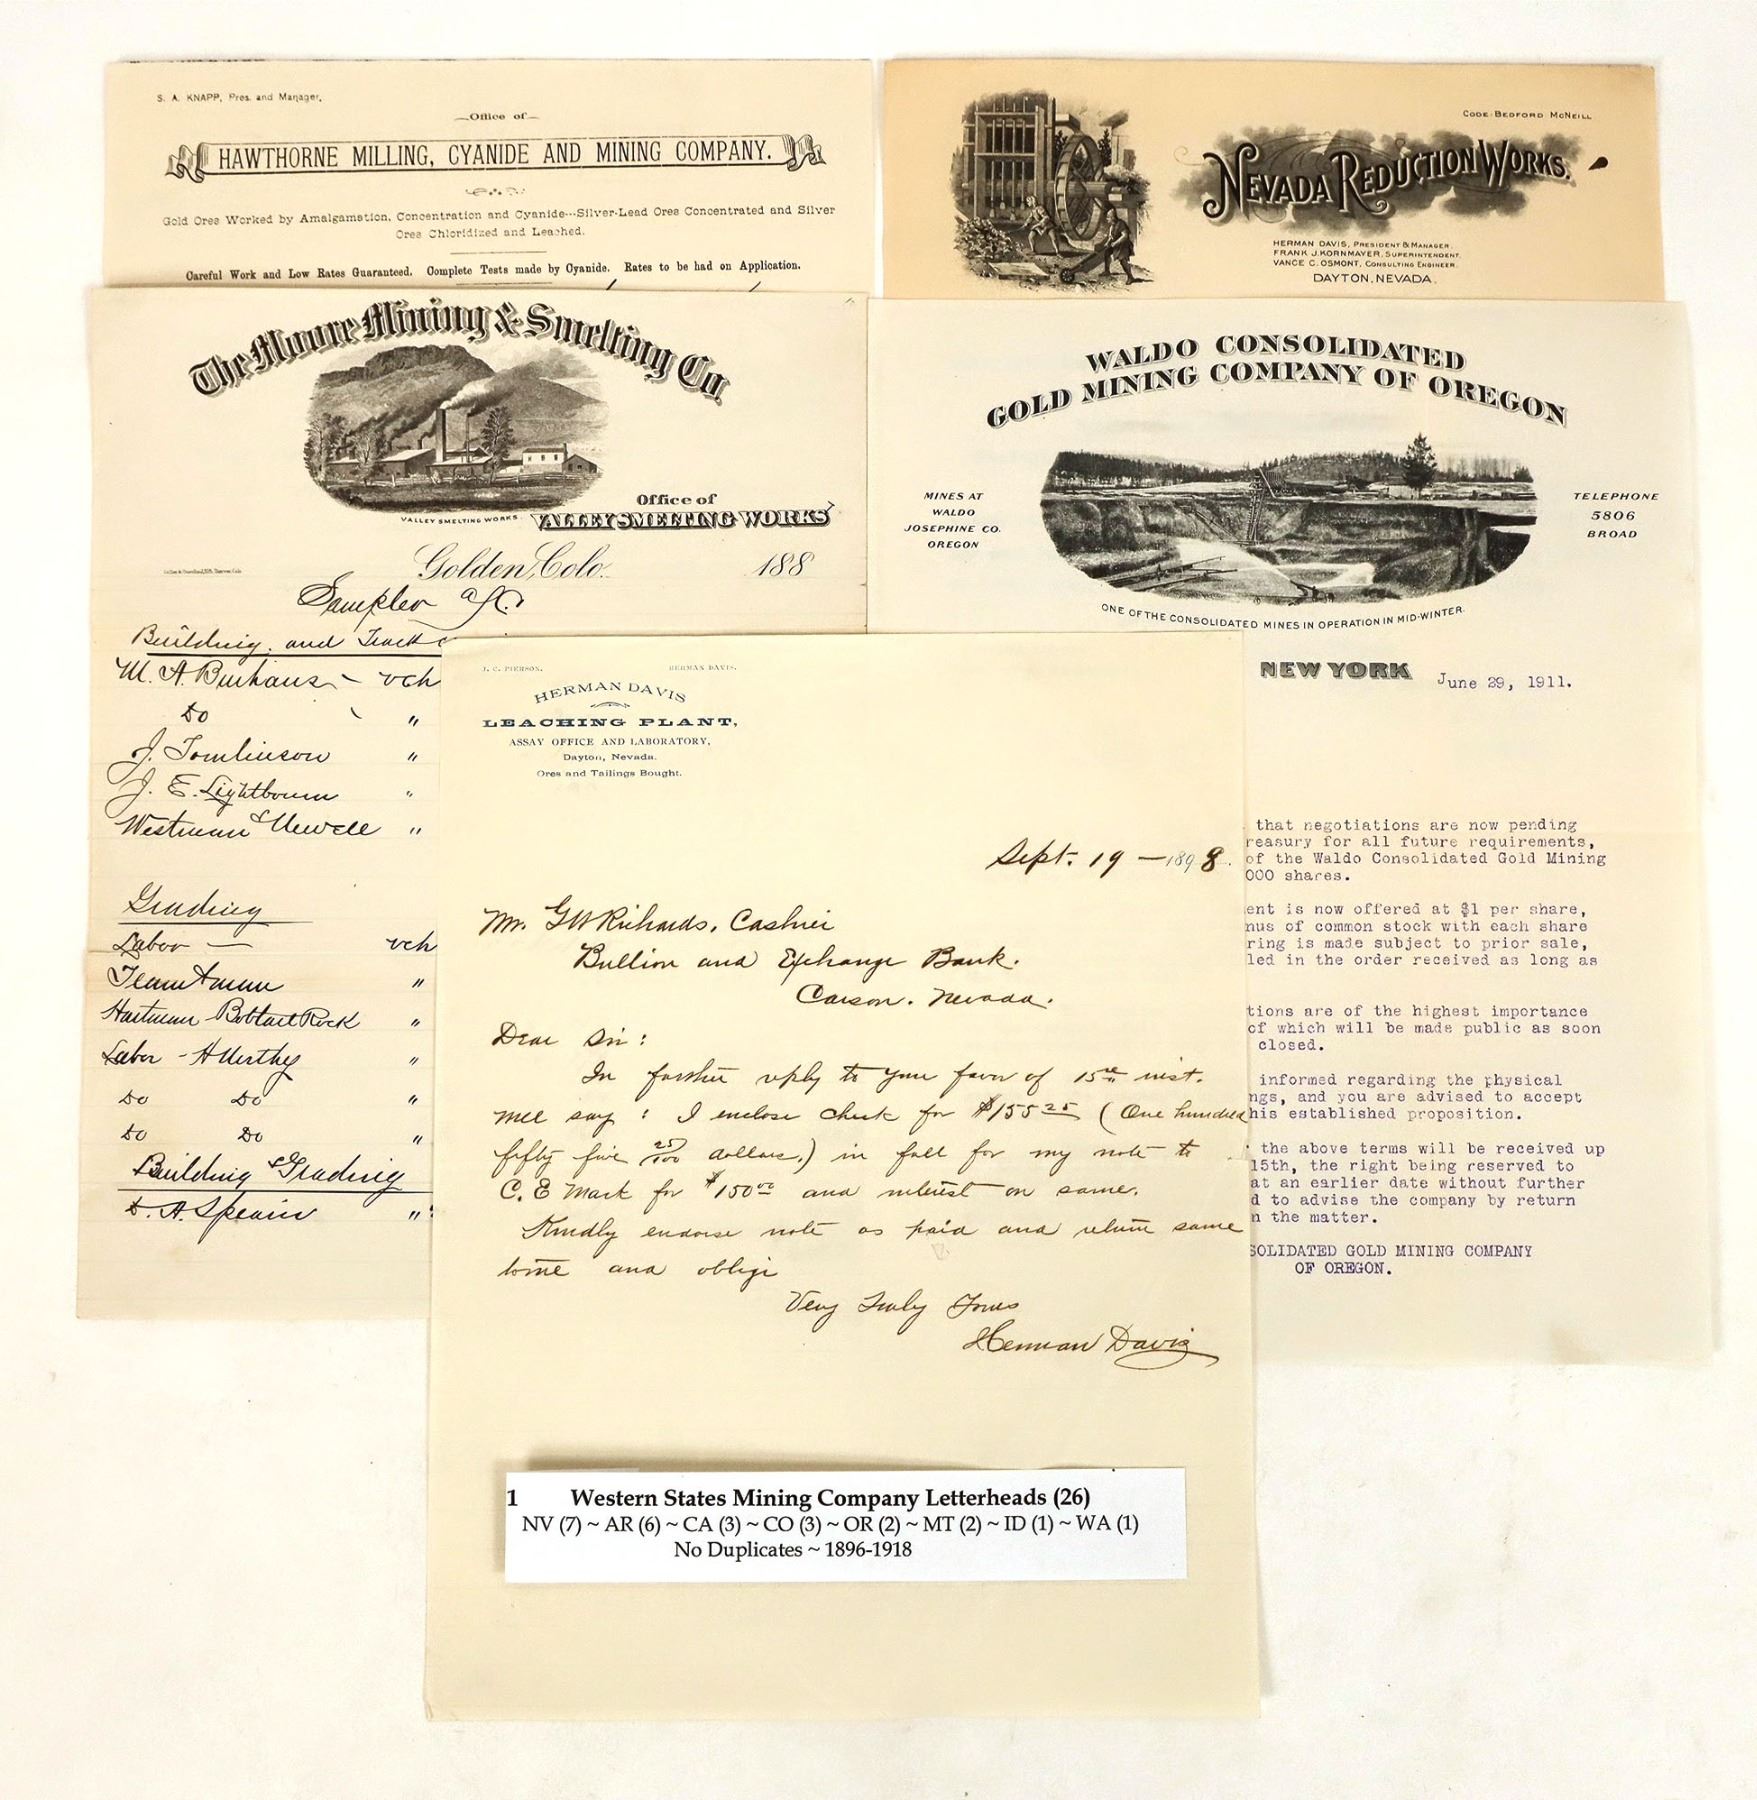 S. A. KNAPP, Pres. and Manager.
Office of
HAWTHORNE MILLING, CYANIDE AND MINING COMPANY.
Gold Ores Worked by Amalgamation, Concentration and Cyanide---Silver-Lead Ores Concentrated and Silver
Ores Chloridized and Leached.
Careful Work and Low Rates Guaranteed. Complete Tests made by Cyanide. Rates to be had on Application.
CODE: BEDFORD MCNEILL
NEVADA REDUCTION WORKS.
HERMAN DAVIS, PRESIDENT & MANAGER.
FRANK J. KORNMAYER, SUPERINTENDENT.
VANCE C. OSMONT, CONSULTING ENGINEER.
DAYTON, NEVADA.
The Moore Mining & Smelting Co.
VALLEY SMELTING WORKS.
Office of
VALLEY SMELTING WORKS
Golden, Colo. 188
Sampler a/c.
Building and Track
M. A. Burhans - vch
Do "
J. Tomlinson "
J. E. Lightbourn "
Westman & Newell "
Grading
Labor — vch
Team & man "
Hartman Bobtail Rock "
Labor - H "
Do Do "
Do Do "
Building & Grading
D. A. Spearin "
WALDO CONSOLIDATED
GOLD MINING COMPANY OF OREGON
MINES AT
WALDO
JOSEPHINE CO.
OREGON
TELEPHONE
5806
BROAD
ONE OF THE CONSOLIDATED MINES IN OPERATION IN MID-WINTER.
NEW YORK June 29, 1911.
that negotiations are now pending
reasury for all future requirements,
of the Waldo Consolidated Gold Mining
000 shares.
ent is now offered at $1 per share,
nus of common stock with each share
ring is made subject to prior sale,
led in the order received as long as
tions are of the highest importance
of which will be made public as soon
closed.
informed regarding the physical
ngs, and you are advised to accept
his established proposition.
the above terms will be received up
15th, the right being reserved to
at an earlier date without further
d to advise the company by return
n the matter.
SOLIDATED GOLD MINING COMPANY
OF OREGON.
J. C. PIERSON. HERMAN DAVIS.
HERMAN DAVIS
LEACHING PLANT,
ASSAY OFFICE AND LABORATORY,
Dayton, Nevada.
Ores and Tailings Bought.
Sept. 19 — 1898.
Mr. G W Richards, Cashier
Bullion and Exchange Bank.
Carson. Nevada.
Dear Sir:
In further reply to your favor of 15th inst.
will say: I enclose check for $155 25 (One hundred
fifty five 25/100 dollars.) in full for my note to
C. E Mack for $150 00 and interest on same.
Kindly endorse note as paid and return same
to me and oblige
Very Truly Yours
Herman Davis
1 Western States Mining Company Letterheads (26)
NV (7) ~ AR (6) ~ CA (3) ~ CO (3) ~ OR (2) ~ MT (2) ~ ID (1) ~ WA (1)
No Duplicates ~ 1896-1918